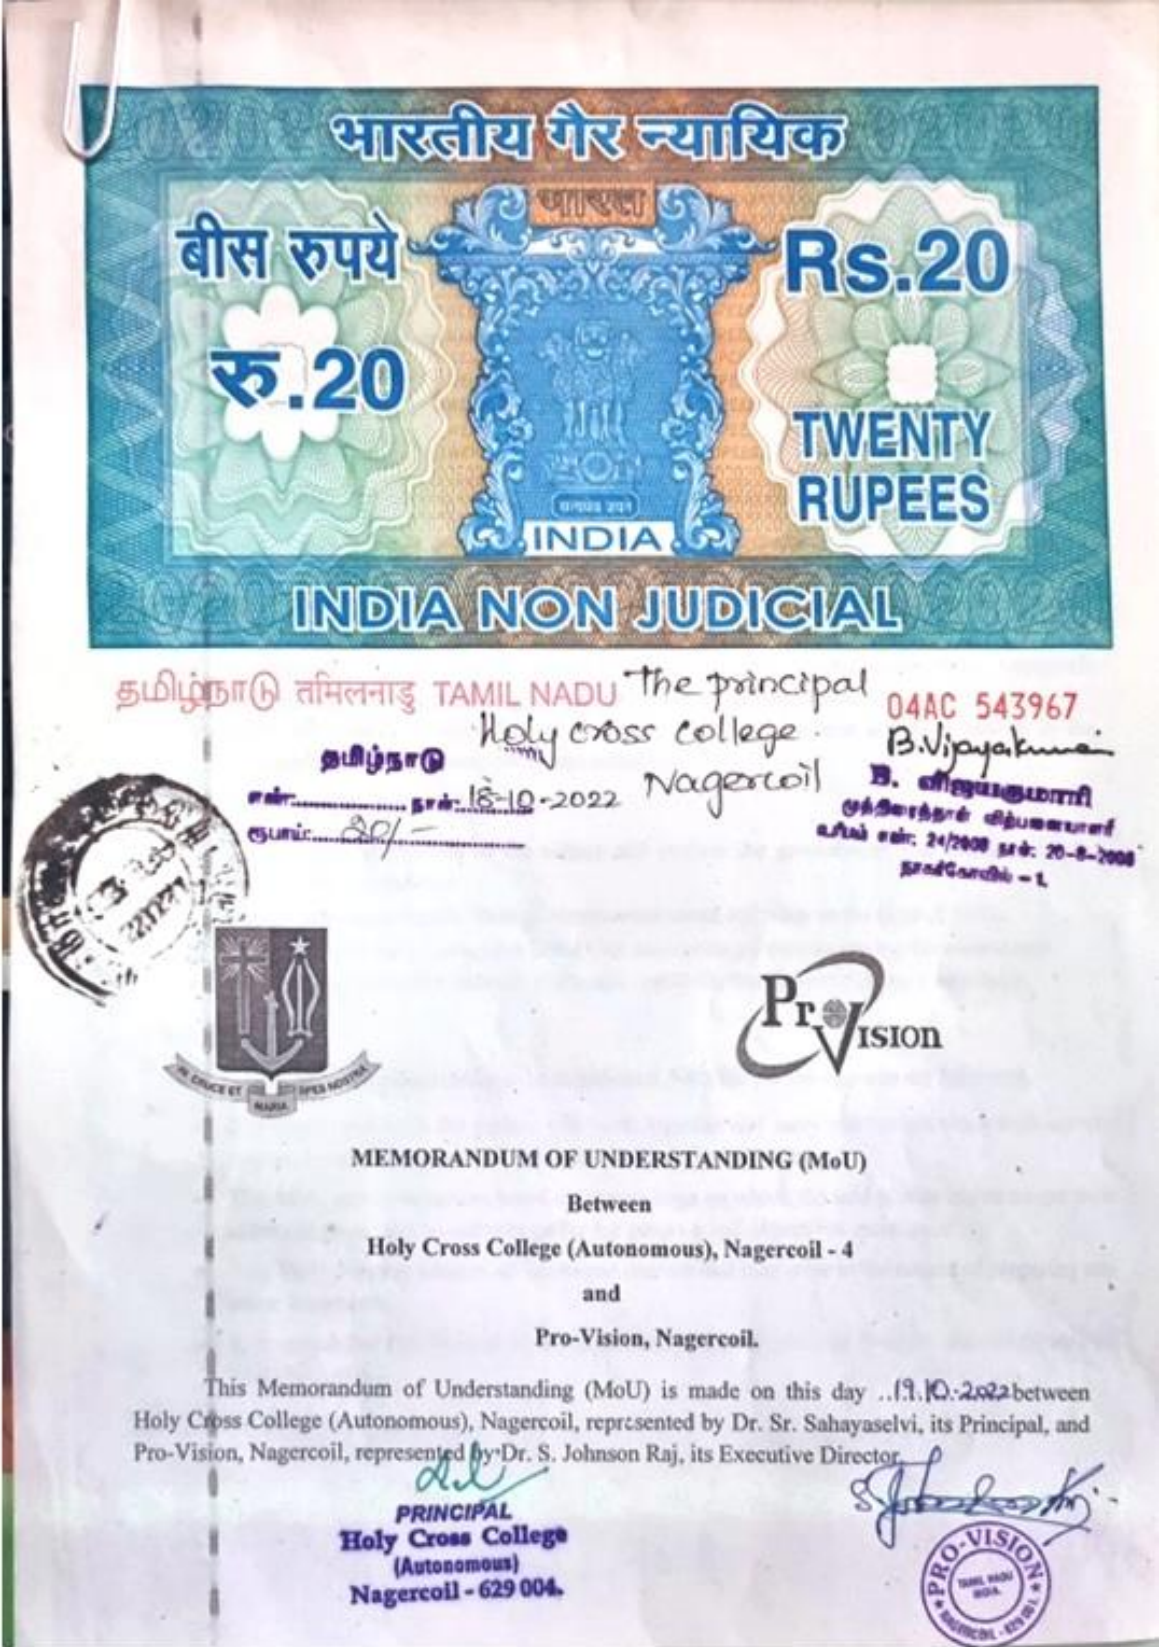 भारतीय गैर न्यायिक
भारत
बीस रुपये
रु.20
Rs.20
TWENTY
RUPEES
सत्यमेव जयते
INDIA
INDIA NON JUDICIAL
தமிழ்நாடு तमिलनाडु TAMIL NADU
The principal
Holy cross college
Nagercoil
04AC 543967
B.Vijayakumari
தமிழ்நாடு
எண்:.................... நாள்: 18-10-2022
ரூபாய்:.....20/-
B. விஜயகுமாரி
முத்திரைத்தாள் விற்பனையாளர்
உரிமம் எண்: 24/2008 நாள்: 20-8-2008
நாகர்கோவில் - 1.
IN CRUCE ET
MARIA
SPES NOSTRA
Pro Vision
MEMORANDUM OF UNDERSTANDING (MoU)
Between
Holy Cross College (Autonomous), Nagercoil - 4
and
Pro-Vision, Nagercoil.
This Memorandum of Understanding (MoU) is made on this day ..19.10.2022 between
Holy Cross College (Autonomous), Nagercoil, represented by Dr. Sr. Sahayaselvi, its Principal, and
Pro-Vision, Nagercoil, represented by Dr. S. Johnson Raj, its Executive Director.
PRINCIPAL
Holy Cross College
(Autonomous)
Nagercoil - 629 004.
PRO-VISION
TAMIL NADU
INDIA.